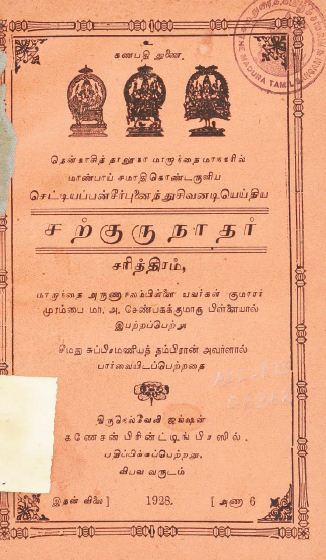 உ
கணபதி துணை.
தென்காசித் தாலூகா மாறாந்தை மாநகரில்
மாண்பாய் சமாதிகொண்டருளிய
செட்டியப்பன்சீர்புனைந்துசிவனடியெய்திய
சற்குருநாதர்
சரித்திரம்,
மாறாந்தை அருணாசலம்பிள்ளை யவர்கள் குமாரர்
முரம்பை மா. அ. சேண்பகக்குமாரு பிள்ளையால்
இயற்றப்பெற்று
சீமது சுப்பிரமணியத் தம்பிரான் அவர்களால்
பார்வையிடப்பெற்றதை
திருநெல்வேலி ஜங்ஷன்
கணேசன் பிரின்ட்டிங் பிரஸில்.
பதிப்பிக்கப்பெற்றது.
விபவ வருடம்
இதன் விலை ] 1928. [ அணா 6
THE MADURA TAMIL